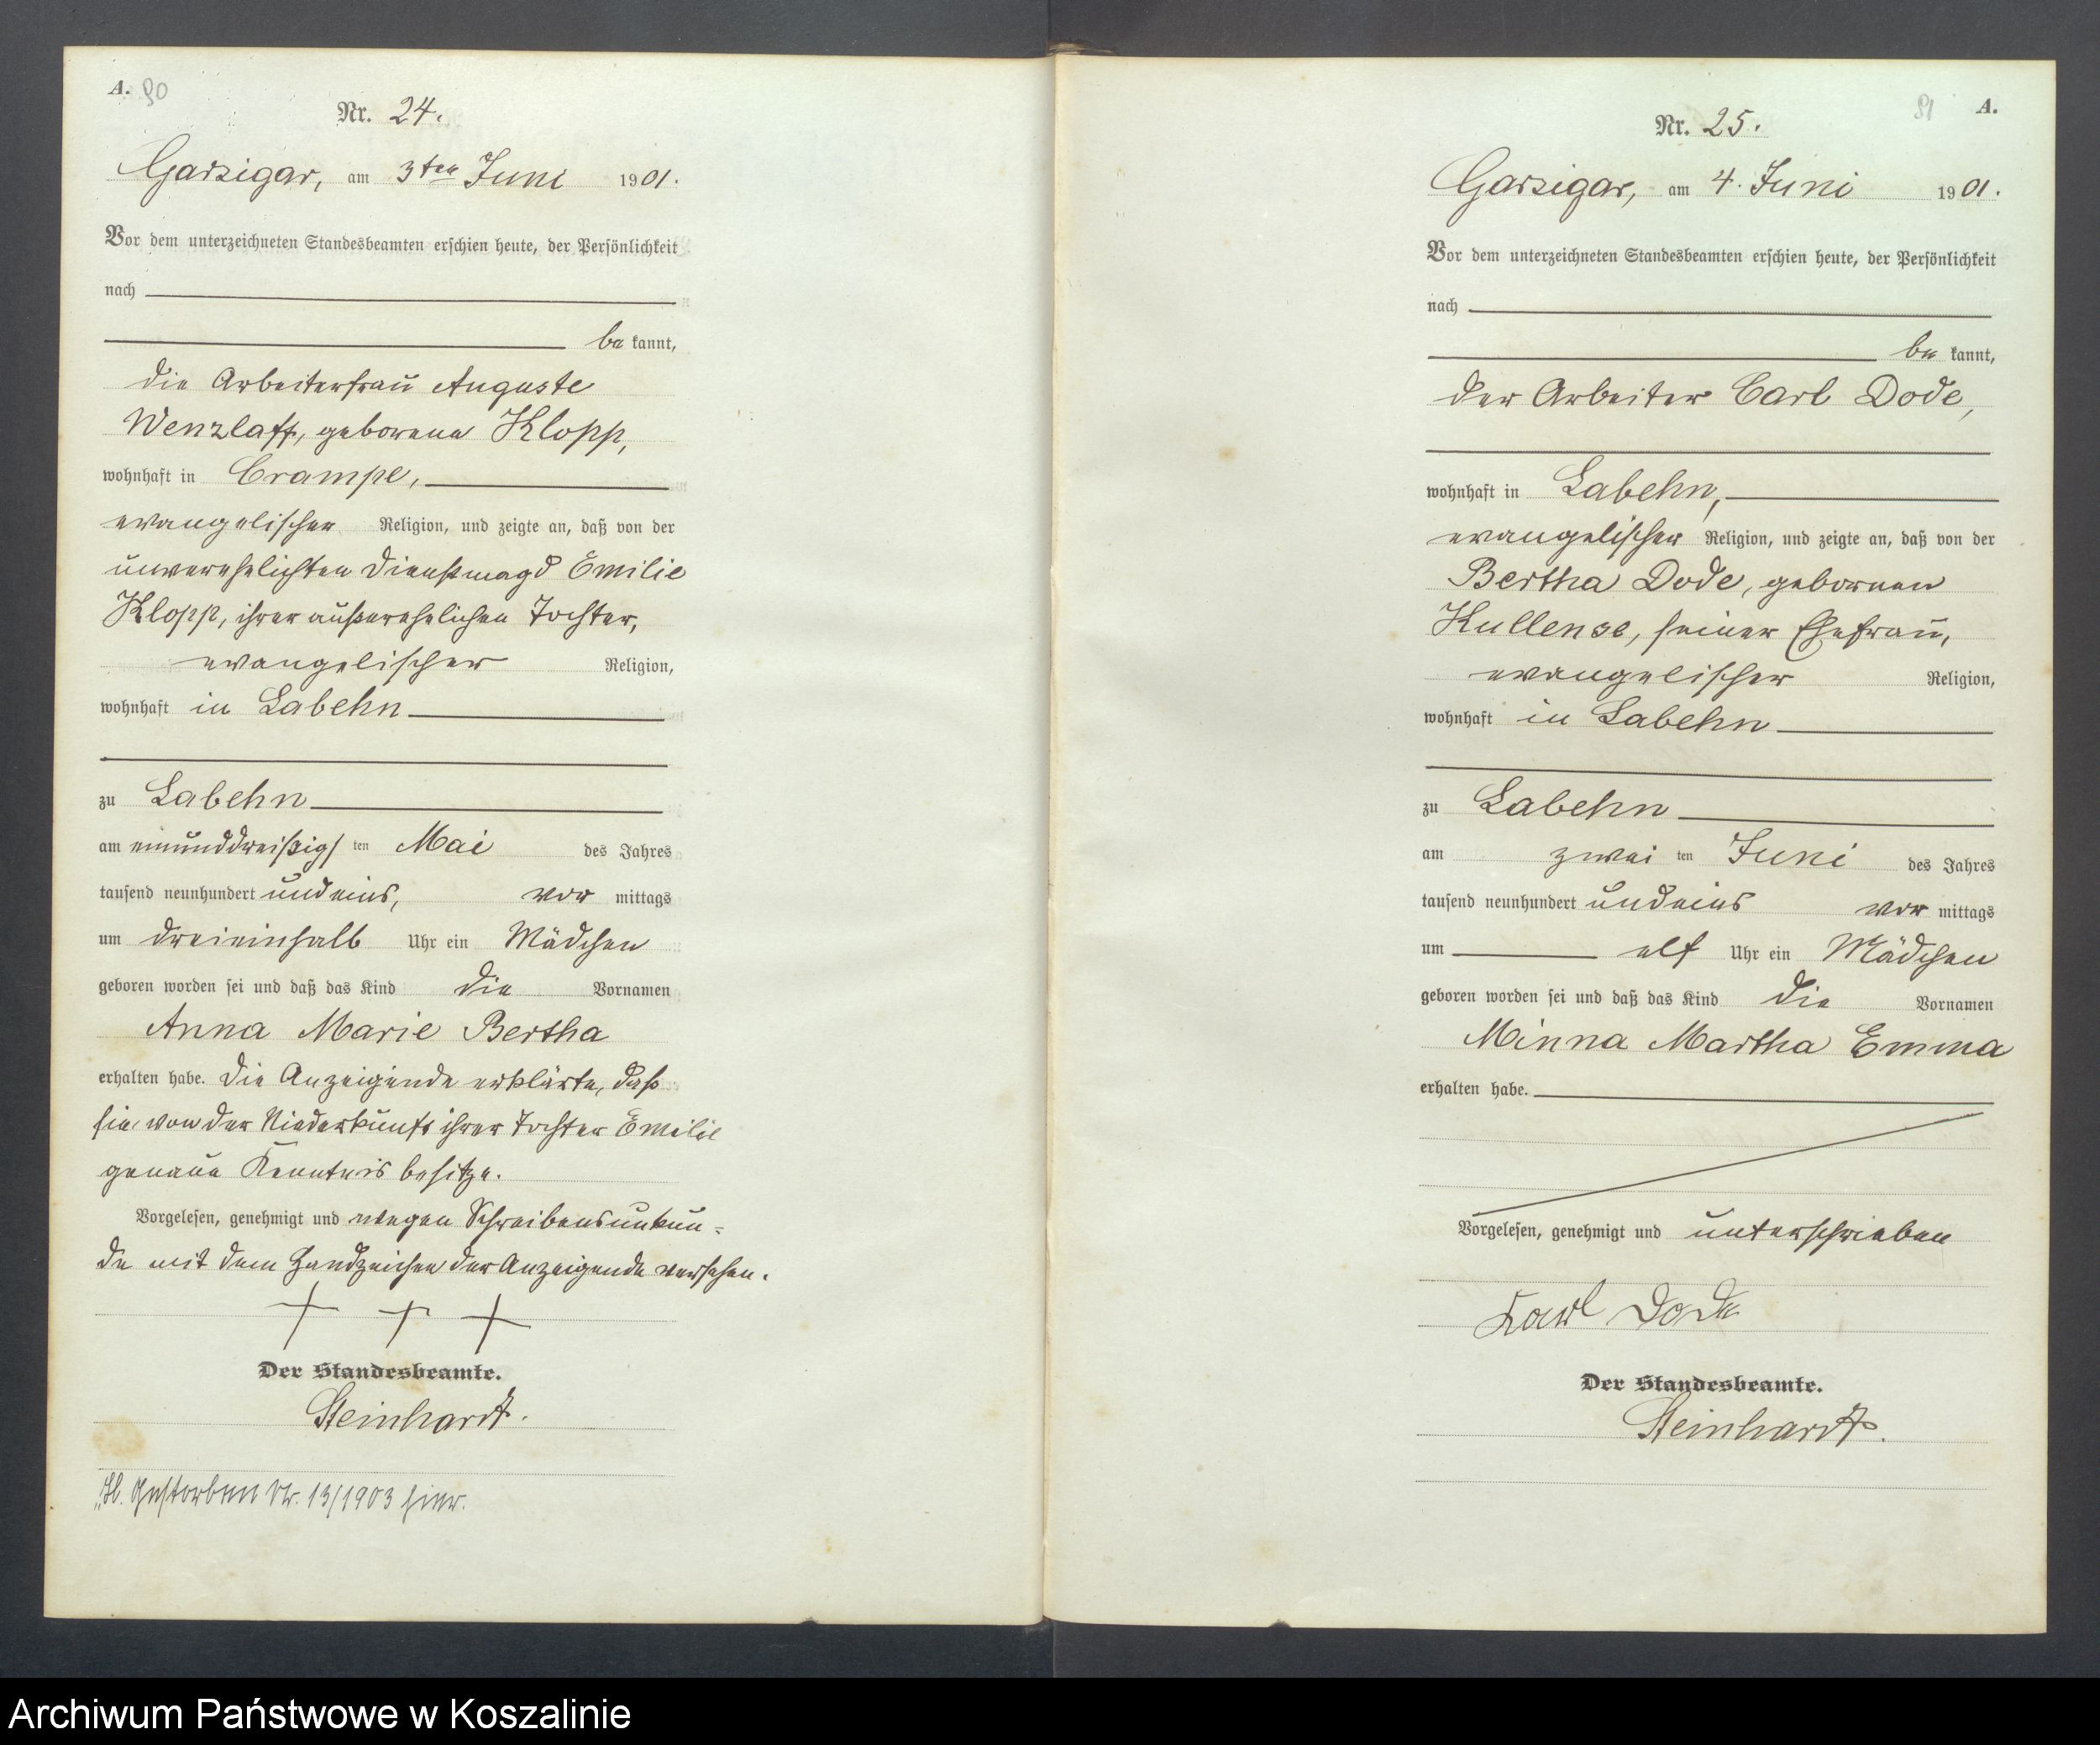 A. 90
Nr. 24.
Garzigar, am 3ten Juni 1901.
Vor dem unterzeichneten Standesbeamten erschien heute, der Persönlichkeit
nach
bekannt,
die Arbeiterfrau Auguste
Wenzlaff, geborene Klopp,
wohnhaft in Crampe,
evangelischer Religion, und zeigte an, daß von der
unverehelichten Dienstmagd Emilie
Klopp, ihrer außerehelichen Tochter,
evangelischer Religion,
wohnhaft in Labehn
zu Labehn
am einunddreißigsten Mai des Jahres
tausend neunhundert und eins, vormittags
um dreieinhalb Uhr ein Mädchen
geboren worden sei und daß das Kind die Vornamen
Anna Marie Bertha
erhalten habe. Die Anzeigende erklärte, daß
sie von der Niederkunft ihrer Tochter Emilie
genaue Kenntnis besitze.
Vorgelesen, genehmigt und wegen Schreibensunkun-
de mit dem Handzeichen der Anzeigende versehen.
+ + +
Der Standesbeamte.
Steinhardt.
Gestorben Nr. 13/1903 hier.
91 A.
Nr. 25.
Garzigar, am 4. Juni 1901.
Vor dem unterzeichneten Standesbeamten erschien heute, der Persönlichkeit
nach
bekannt,
der Arbeiter Carl Dode,
wohnhaft in Labehn,
evangelischer Religion, und zeigte an, daß von der
Bertha Dode, gebornen
Kullense, seiner Ehefrau,
evangelischer Religion,
wohnhaft in Labehn
zu Labehn
am zweiten Juni des Jahres
tausend neunhundert und eins vormittags
um elf Uhr ein Mädchen
geboren worden sei und daß das Kind die Vornamen
Minna Martha Emma
erhalten habe.
Vorgelesen, genehmigt und unterschrieben
Karl Dode
Der Standesbeamte.
Steinhardt.
Archiwum Państwowe w Koszalinie